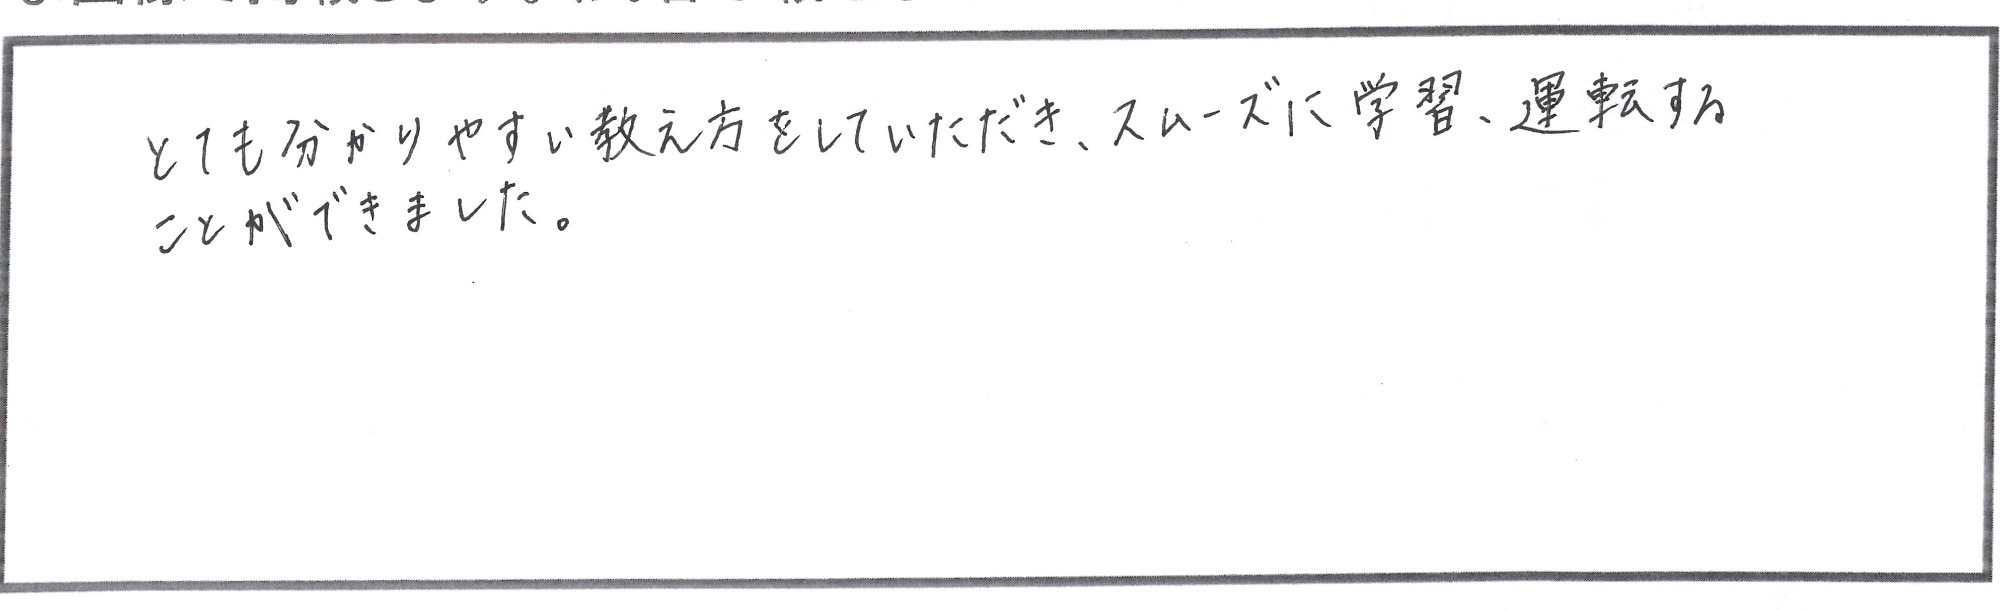 とても分かりやすい教え方をしていただき、スムーズに学習、運転する
ことができました。